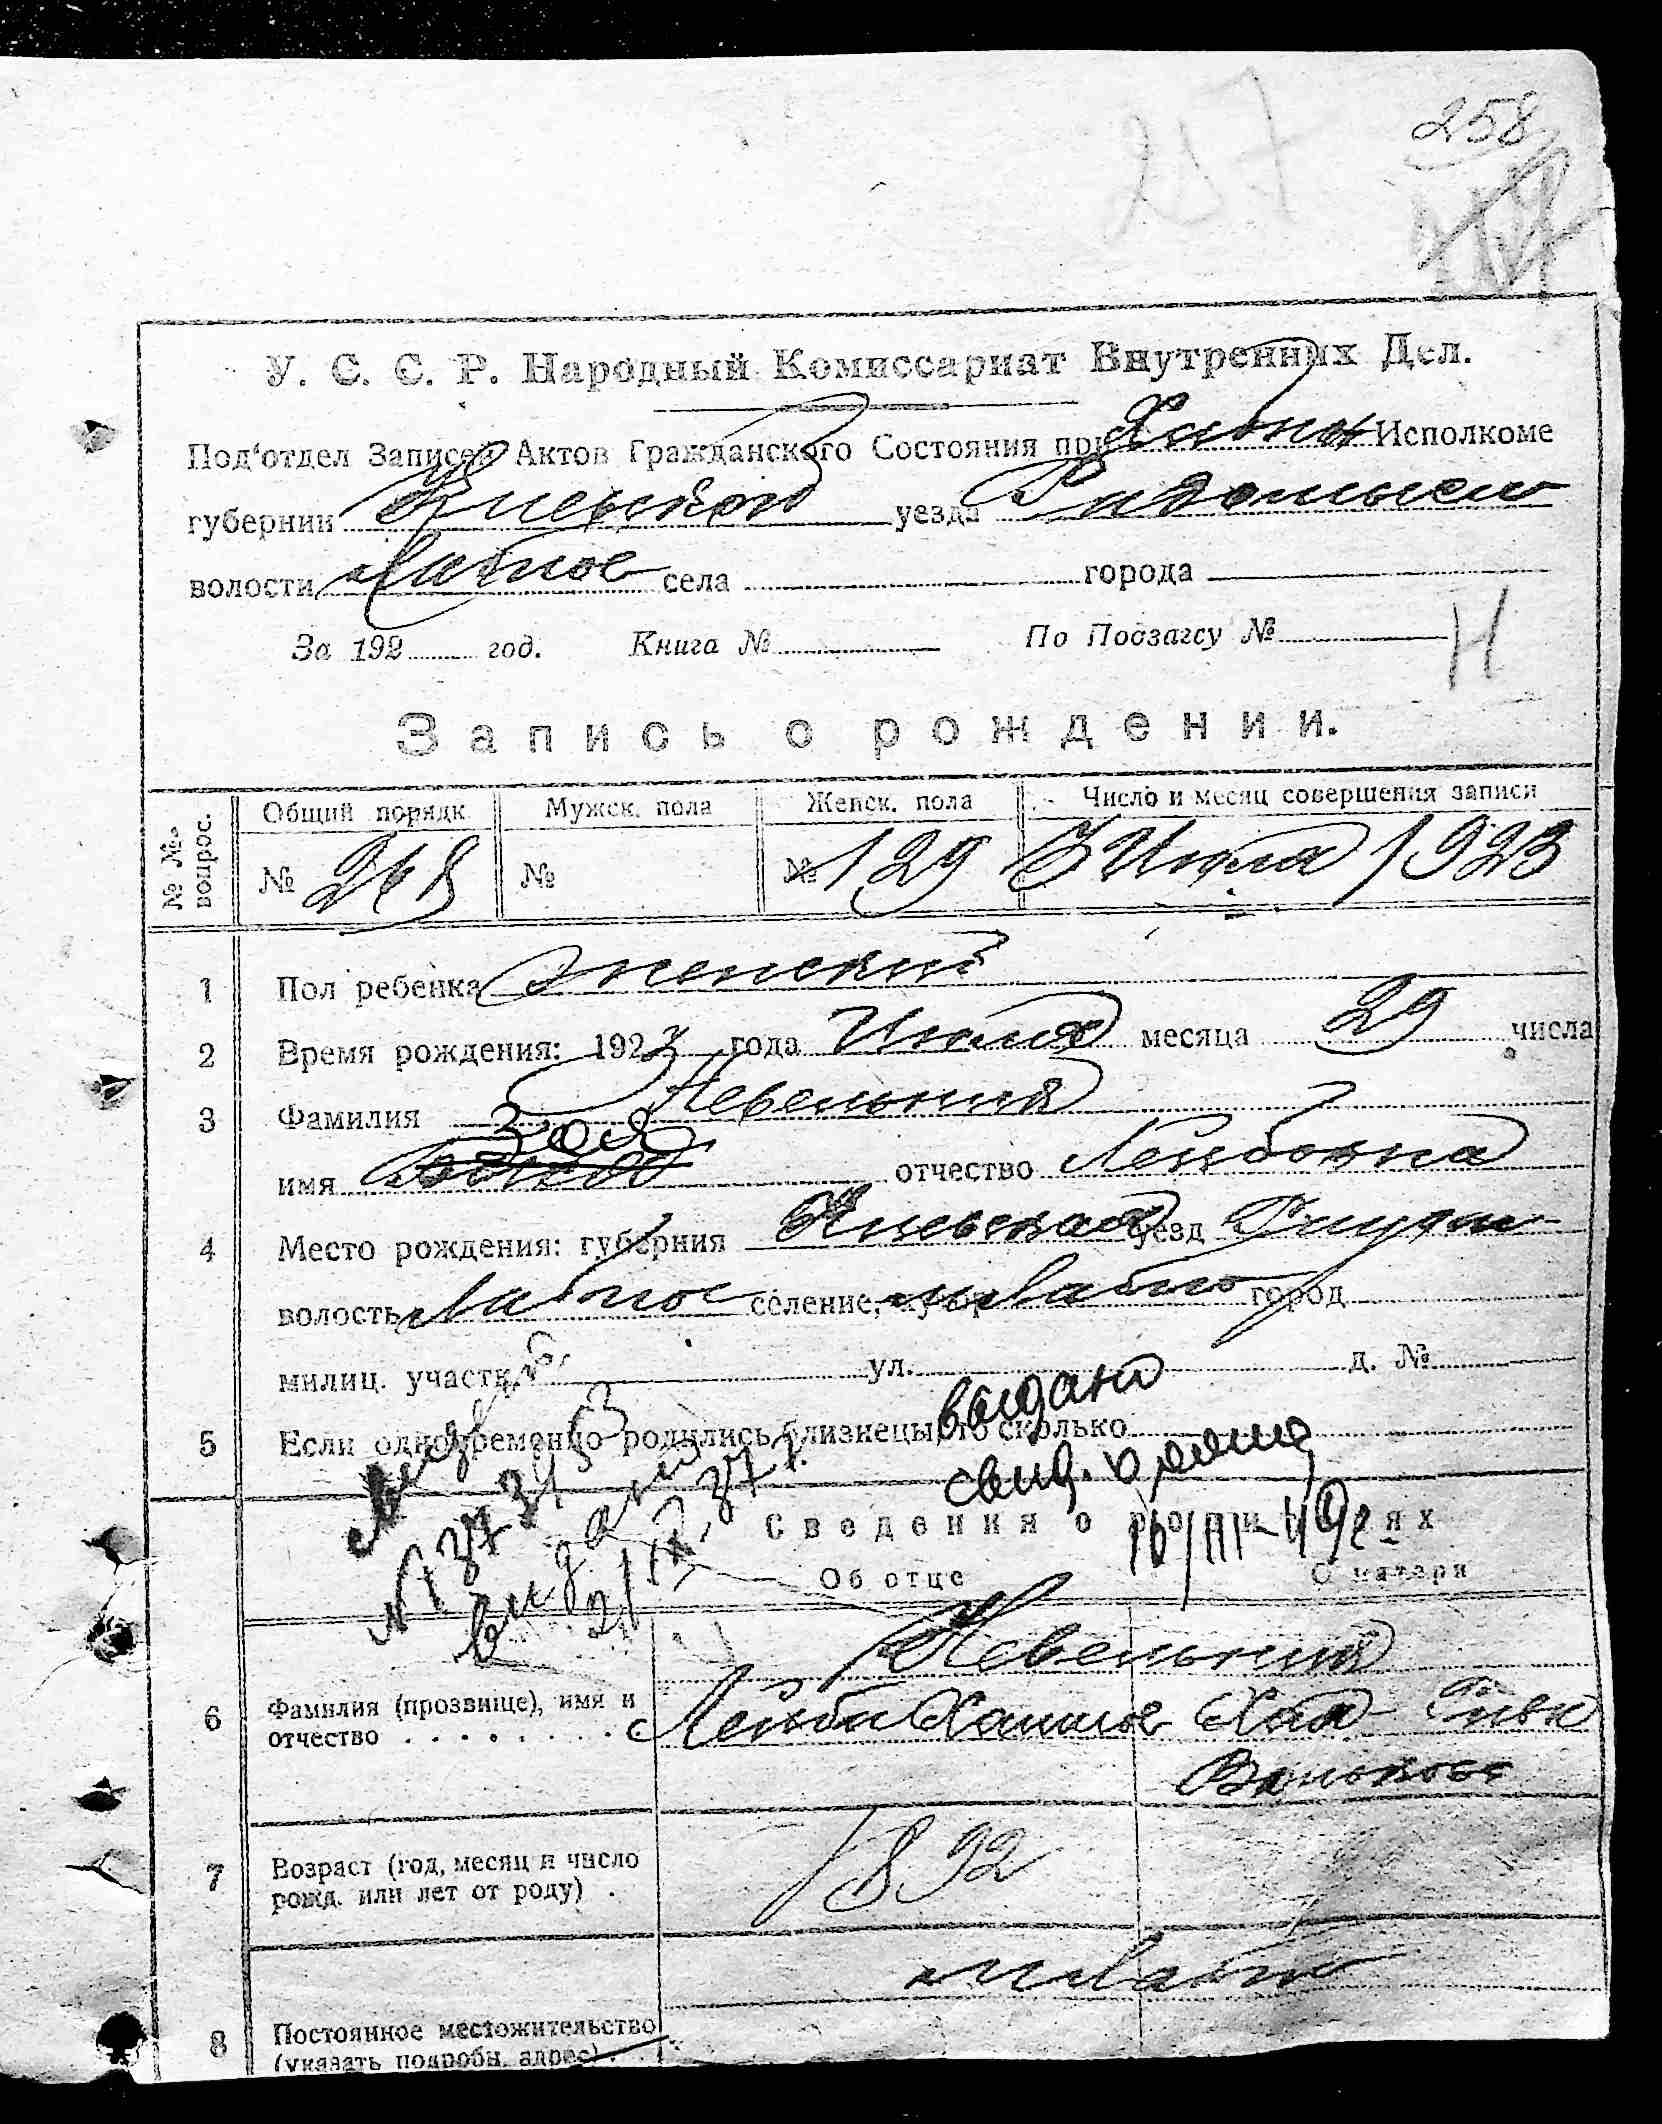 258
257
У. С. С. Р. Народный Комиссариат Внутренних Дел.
Под'отдел Записей Актов Гражданского Состояния при Хабны Исполкоме
губернии Киевской уезда Радомысль
волости Хабное села города
За 192 год. Книга № По Посзагсу №
Н
Запись о рождении.
№ № вопрос.
Общий порядк. Мужск. пола Женск. пола Число и месяц совершения записи
№ 268 № № 129 3 Июля 1923
1 Пол ребенка женский
2 Время рождения: 1923 года Июля месяца 29 числа
3 Фамилия Невельский
Зоя
имя отчество Лейбовна
4 Место рождения: губерния Киевская уезд
волость Хабное селение, хутор м Хабно город
милиц. участк. ул. д. №
5 Если одновременно родились близнецы, то сколько
выдано
свид. о рожд
10/III-49г
№
видано
21/IX 37 г.
Сведения о родителях
Об отце О матери
Невельский
6 Фамилия (прозвище), имя и
отчество Лейба Хая-Ривка
7 Возраст (год, месяц и число
рожд. или лет от роду) 1892
м Хабно
8 Постоянное местожительство
(указать подробн. адрес)